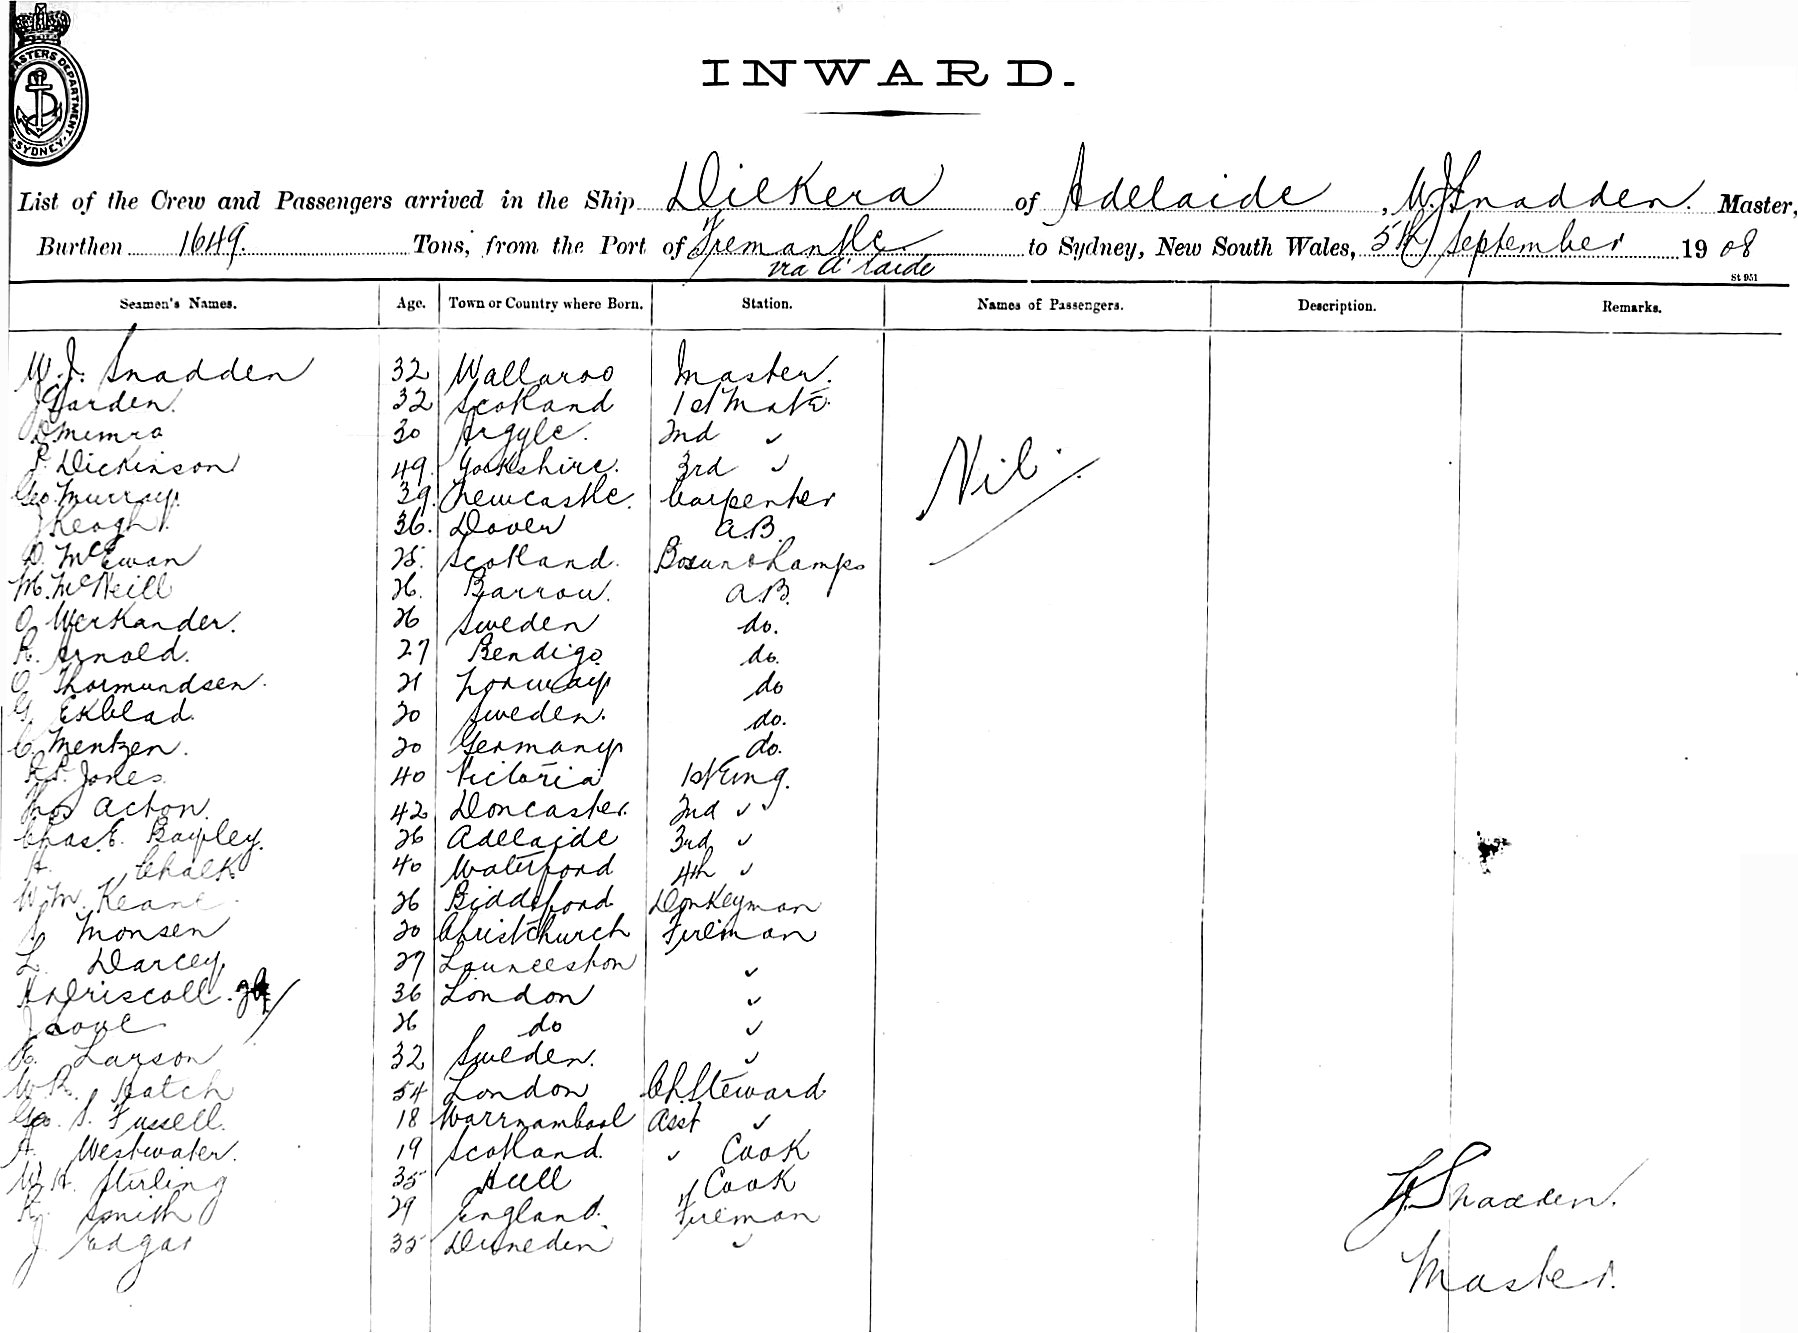 MASTERS DEPARTMENT
SYDNEY
INWARD.
List of the Crew and Passengers arrived in the Ship Dilkera of Adelaide, W. J. Snadden Master,
Burthen 1649. Tons, from the Port of Fremantle to Sydney, New South Wales, 5th September 1908
via A'laide
St 951
Seamen's Names. Age. Town or Country where Born. Station. Names of Passengers. Description. Remarks.
W. J. Snadden 32 Wallaroo Master.
J Garden. 32 Scotland 1st Mate
30 Argyle. 2nd "
Dickinson 49. Yorkshire. 3rd "
Nil.
Geo. Murray. 39. Newcastle. Carpenter
J Keogh. 36. Dover A.B.
D. McEwan 25. Scotland. Bosun & Lamps
M. McNeill 26. Barrow. A.B.
O Werkander. 26 Sweden do.
R. Arnold. 27 Bendigo do.
O Thormundsen. 21 Norway do
G. Ekblad. 20 Sweden. do.
C. Mentzen. 20 Germany do.
R. P. Jones. 40 Victoria 1st Eng.
Thos Acton. 42 Doncaster. 2nd " "
Chas. E. Bayley. 26 Adelaide 3rd "
A. Chalk 40 Waterford 4th "
Wm. Keane 26 Biddeford Donkeyman
Monsen 20 Christchurch Fireman
L. Darcey 27 Launceston "
H. O'Driscoll 36 London "
J Love 26 do "
E. Larson 32 Sweden. "
W R. Hatch 54 London Ch. Steward
Geo. S. Fussell. 18 Warrnambool Asst "
A. Westwater. 19 Scotland. " Cook
W. H. Stirling 35 Hull Cook
R. Smith 29 England. Fireman
J. Edgar 35 Dunedin "
W. J. Snadden.
Master.